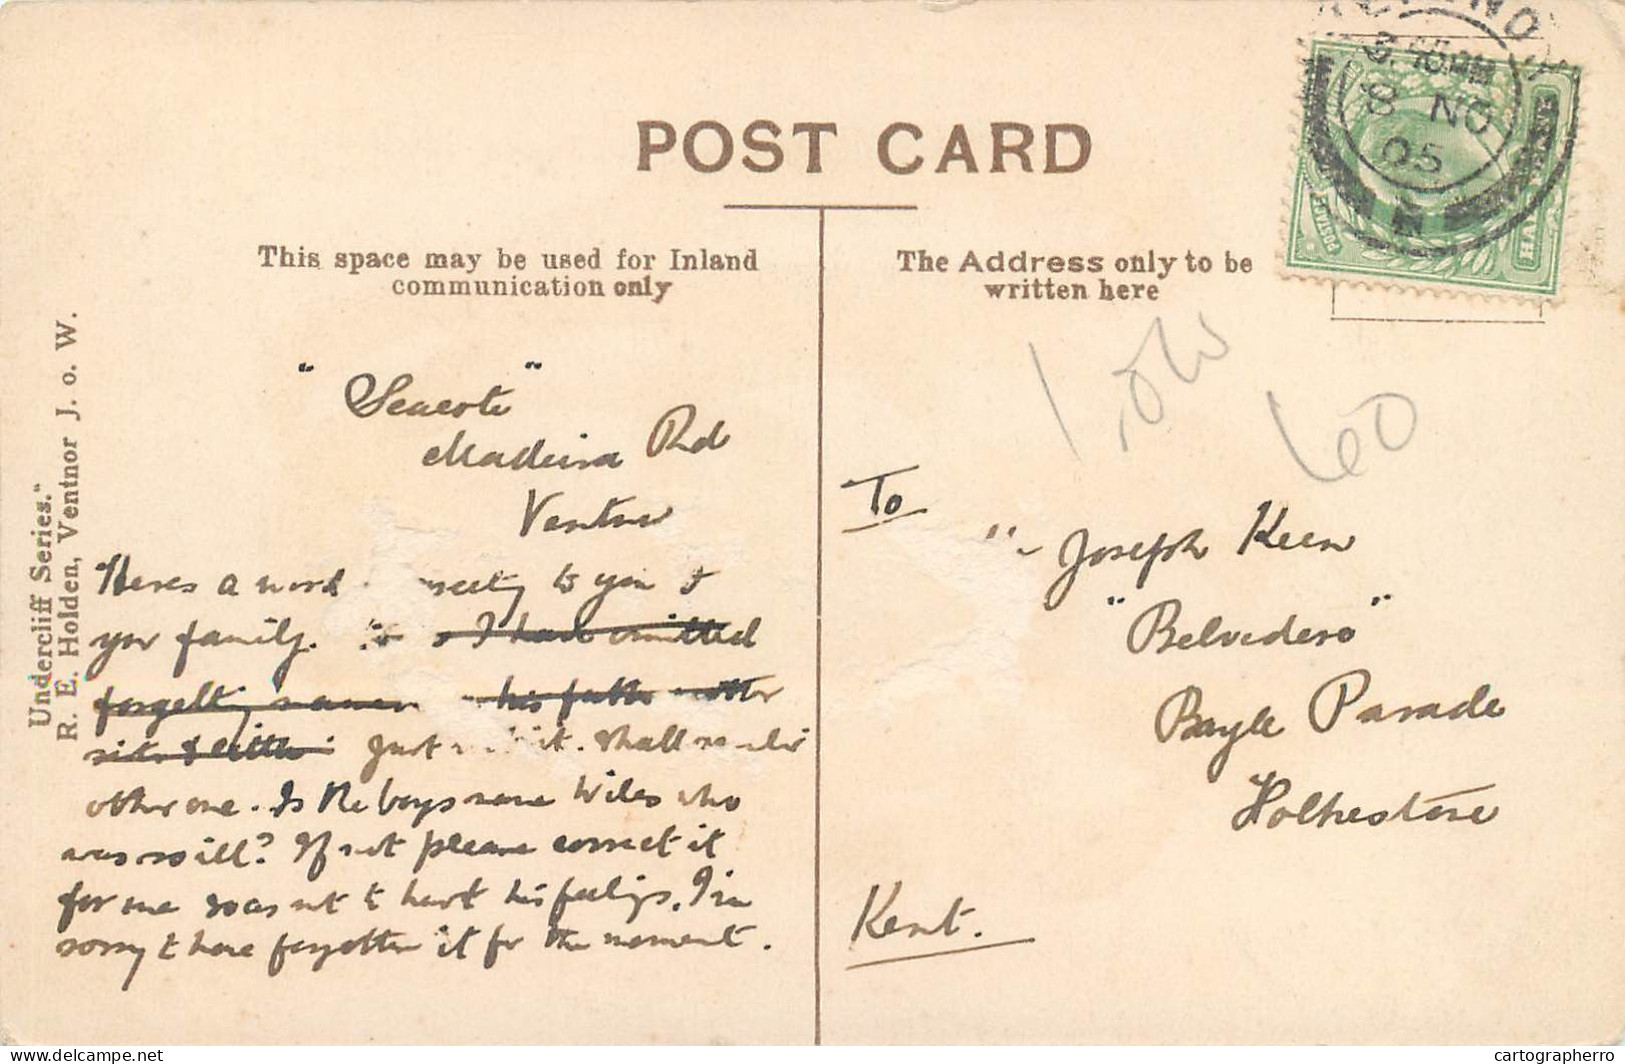 POST CARD
This space may be used for Inland
communication only
The Address only to be
written here
Undercliff Series."
R. E. Holden, Ventnor J. o. W.
8 NO
05
"Seacote"
Madeira Rd
Ventnor
Heres a word to you &
your family. I have omitted
forgetting names his father mother
Just shall
other one. Is the boys name Wiles who
was so ill? If not please correct it
for me so as not t hurt his feelings. I'm
sorry t have forgotten it for the moment.
To
Joseph Keen
"Belvedere"
Bayle Parade
Folkestone
Kent.
60
delcampe.net
cartographerro